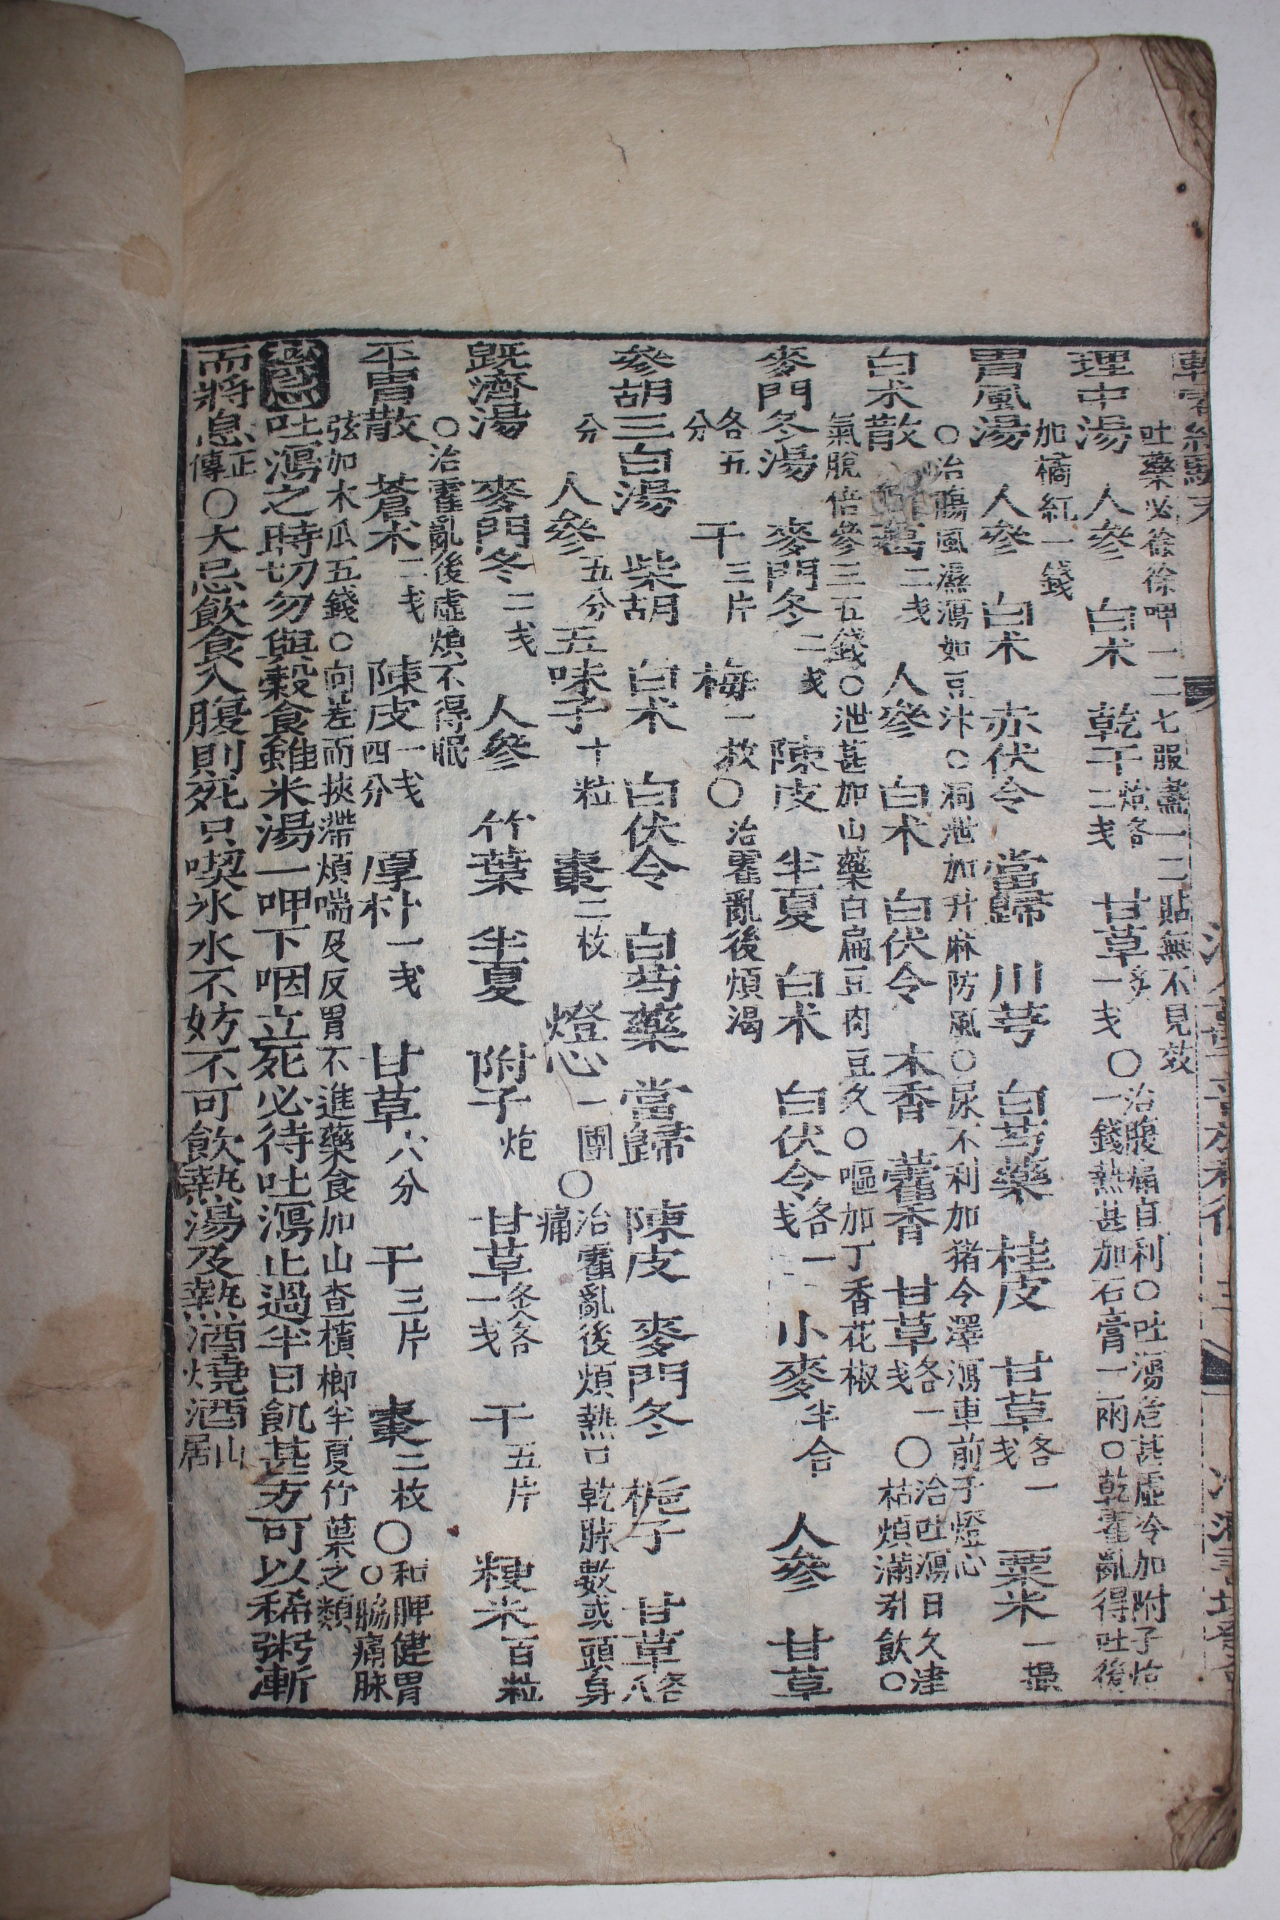 吐藥必徐徐呷一二七服盡一二貼無不見效
理中湯 人參 白朮 乾干二戔炮各 甘草一戔炙○治腹痛自利○吐瀉危甚虛冷加附子炮一錢熱甚加石膏一兩○乾霍亂得吐後
加橘紅一錢
胃風湯 人參 白朮 赤伏令 當歸 川芎 白芍藥 桂皮 甘草各一戔 粟米一撮
○治腸風濕瀉如豆汁○洞泄加升麻防風○尿不利加猪令澤瀉車前子燈心
白朮散 乾葛二戔 人參 白朮 白伏令 木香 藿香 甘草各一戔○治吐瀉日久津枯煩滿引飮○
氣脫倍參三五錢○泄甚加山藥白扁豆肉豆久○嘔加丁香花椒
麥門冬湯 麥門冬二戔 陳皮 半夏 白朮 白伏令各一戔 小麥半合 人參 甘草
各五分 干三片 梅一枚○治霍亂後煩渴
參胡三白湯 柴胡 白朮 白伏令 白芍藥 當歸 陳皮 麥門冬 梔子 甘草各八
分 人參五分 五味子十粒 棗二枚 燈心一團○治霍亂後煩熱口乾脉數或頭身痛
旣濟湯 麥門冬二戔 人參 竹葉 半夏 附子炮 甘草炙各一戔 干五片 粳米百粒
○治霍亂後虛煩不得眠
平胃散 蒼朮二戔 陳皮一戔四分 厚朴一戔 甘草六分 干三片 棗二枚○和脾健胃○脇痛脉
弦加木瓜五錢○向差而挾滯煩喘及反胃不進藥食加山査檳榔半夏竹葉之類
吐瀉之時切勿與穀食雖米湯一呷下咽立死必待吐瀉止過半日飢甚方可以稀粥漸
而將息正傳○大忌飮食入腹則死只喫氷水不妨不可飮熱湯及熱酒燒酒山居